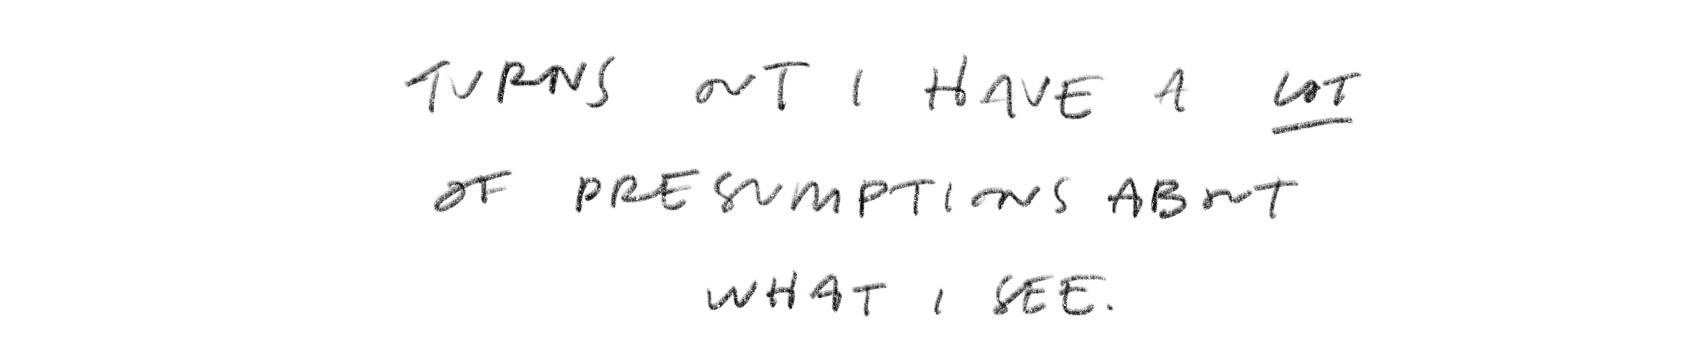 TURNS OUT I HAVE A LOT
OF PRESUMPTIONS ABOUT
WHAT I SEE.